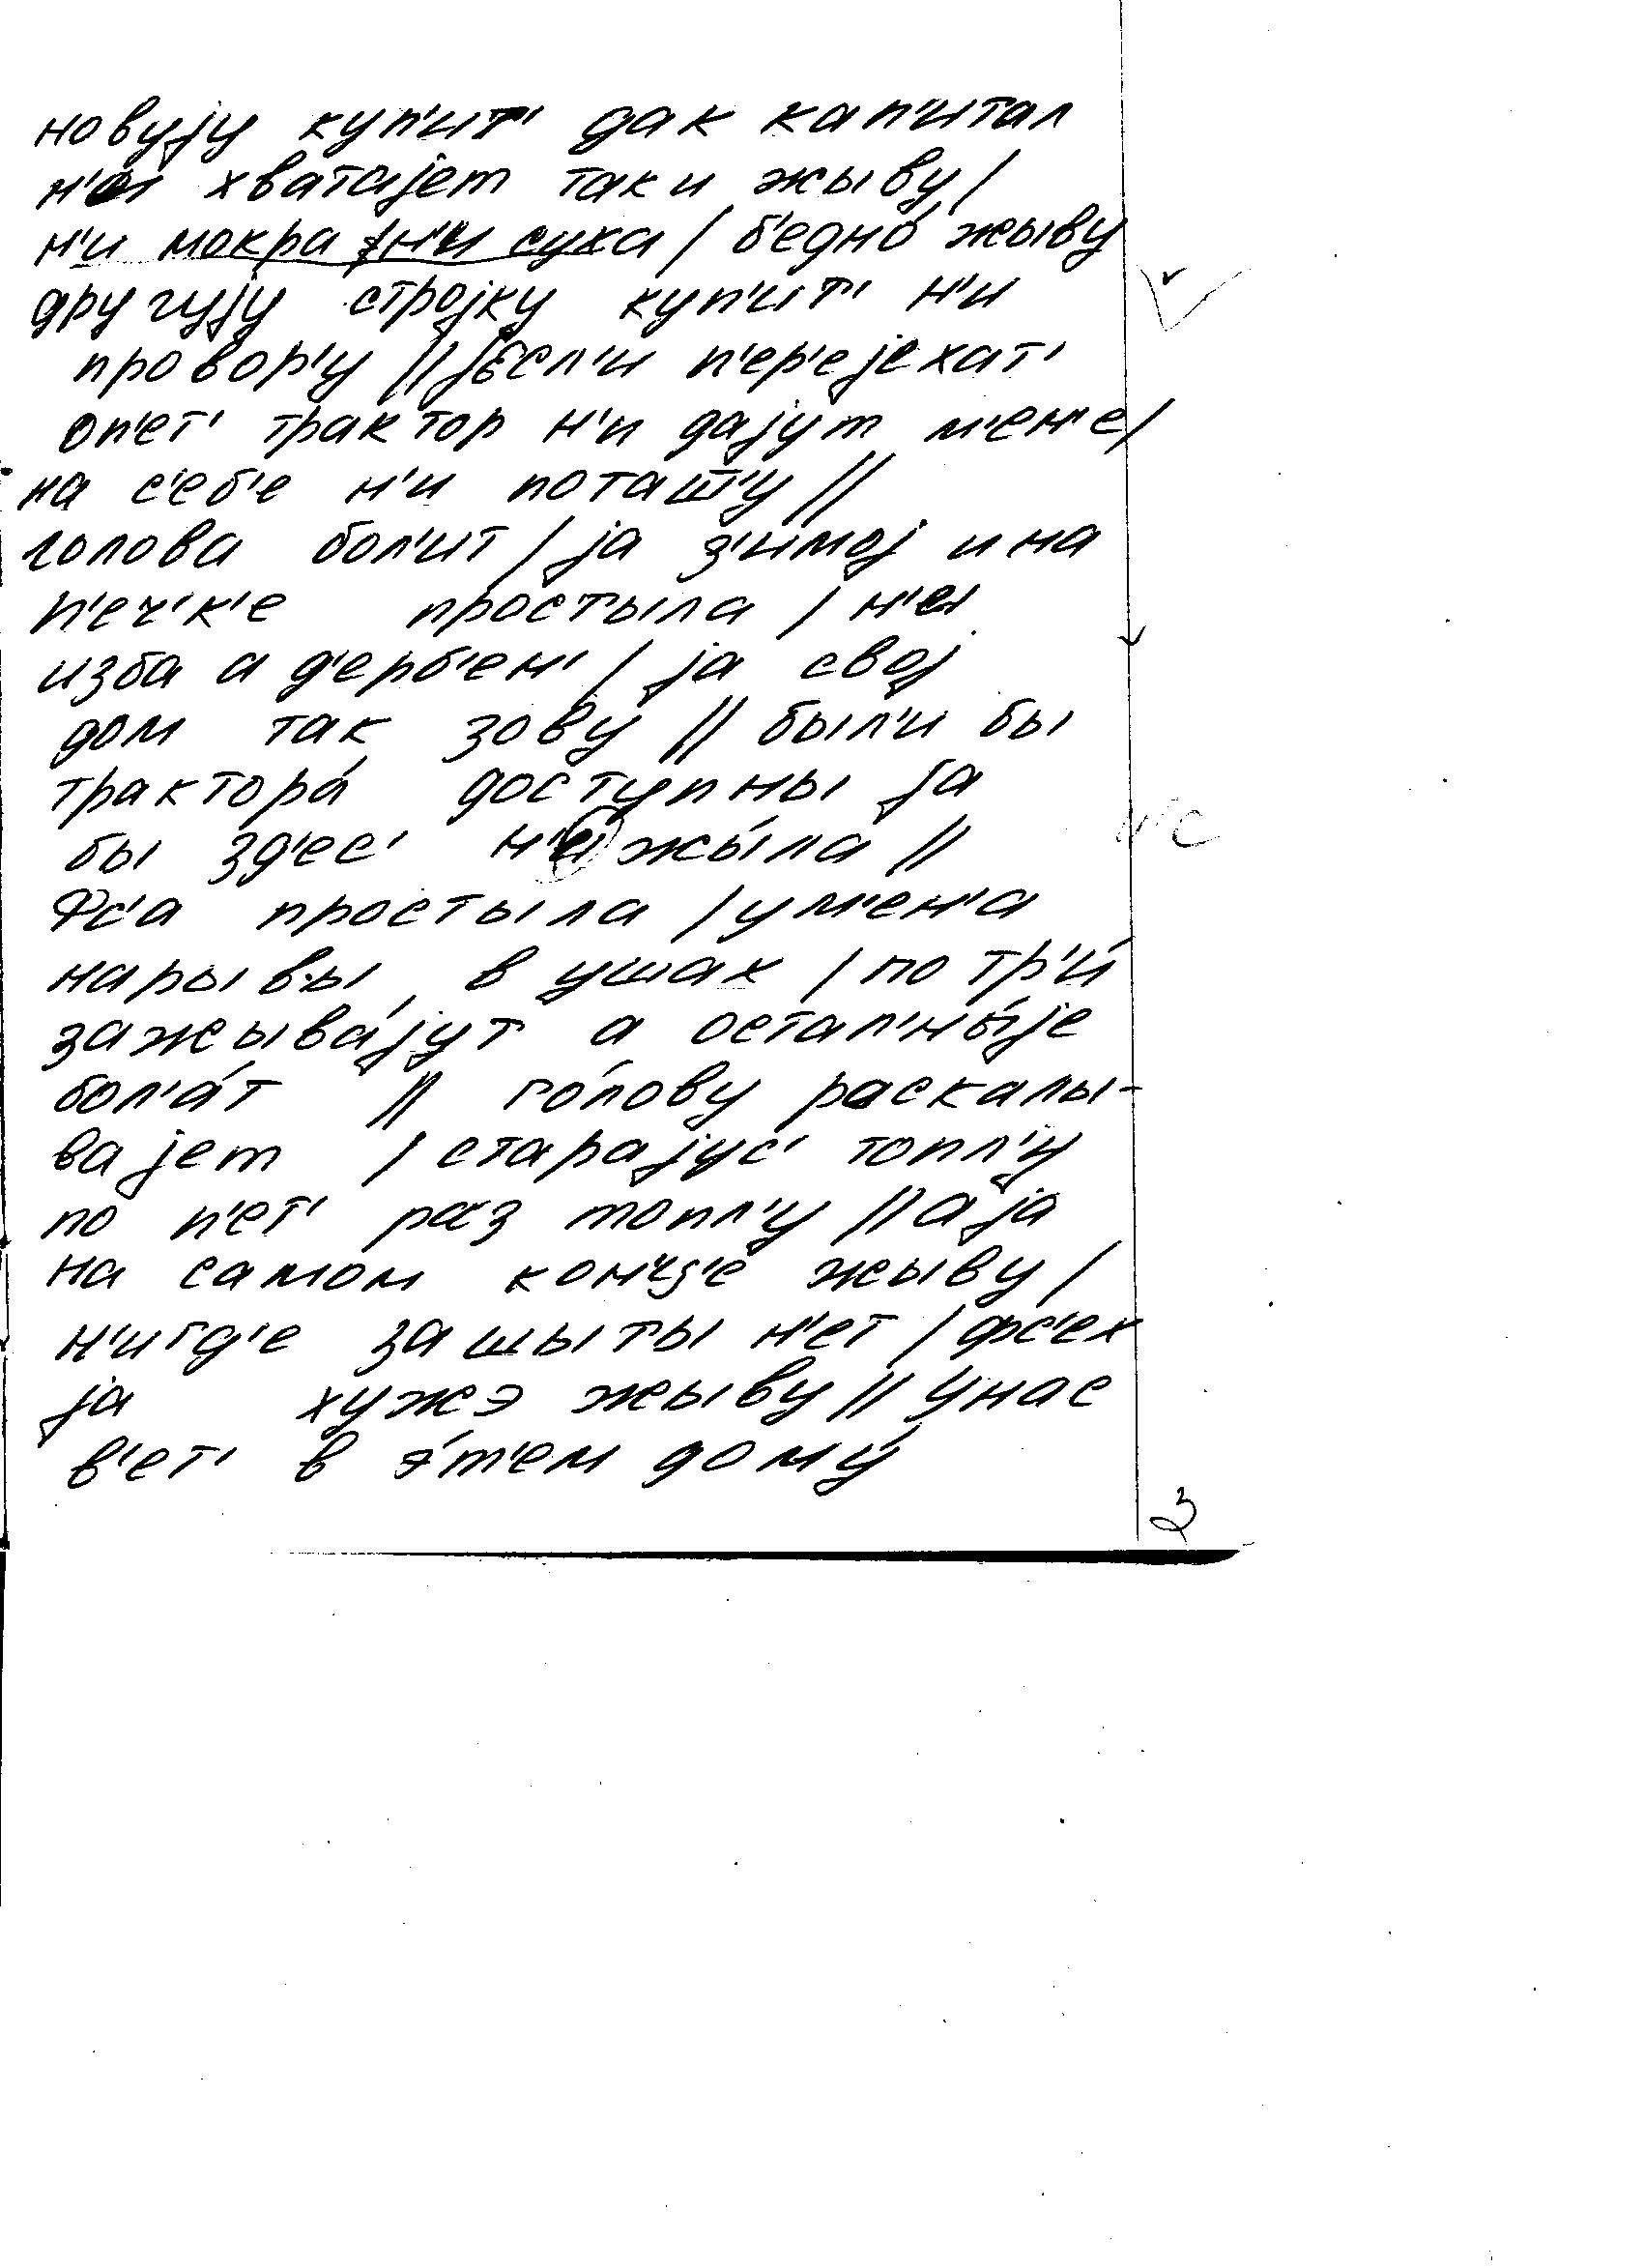 новуjу куп'ит' дак кап'итал
н'и хватаjет так и жыву /
н'и мокра н'и суха / б'едно́ жыву
другуjу строjку куп'ит' н'и
провор'у // jесл'и п'ер'еjехат'
оп'ет' трактор н'и даjут м'ен'е /
на с'еб'е н'и поташ̄'у //
голова бол'ит / jа з'имоj и на
п'еч'к'е простыла / н'и
изба а д'ерб'ен' / jа своj
дом так зову // был'и бы
трактора́ доступны jа
бы зд'ес' н'и жы́ла //
Фс'а простыла / у м'ен'а
нарывы в ушах / по тр'и́
зажыва́jут а остал'ны́jе
бол'а́т // го́лову раскалы-
ваjет / стараjус' топл'у
по п'ет' раз топл'у // а jа
на самом конце жыву /
н'игд'е зашыты н'ет / фс'ех
jа хужэ жыву // У нас
в'ет' в э́т'ем дому́
3